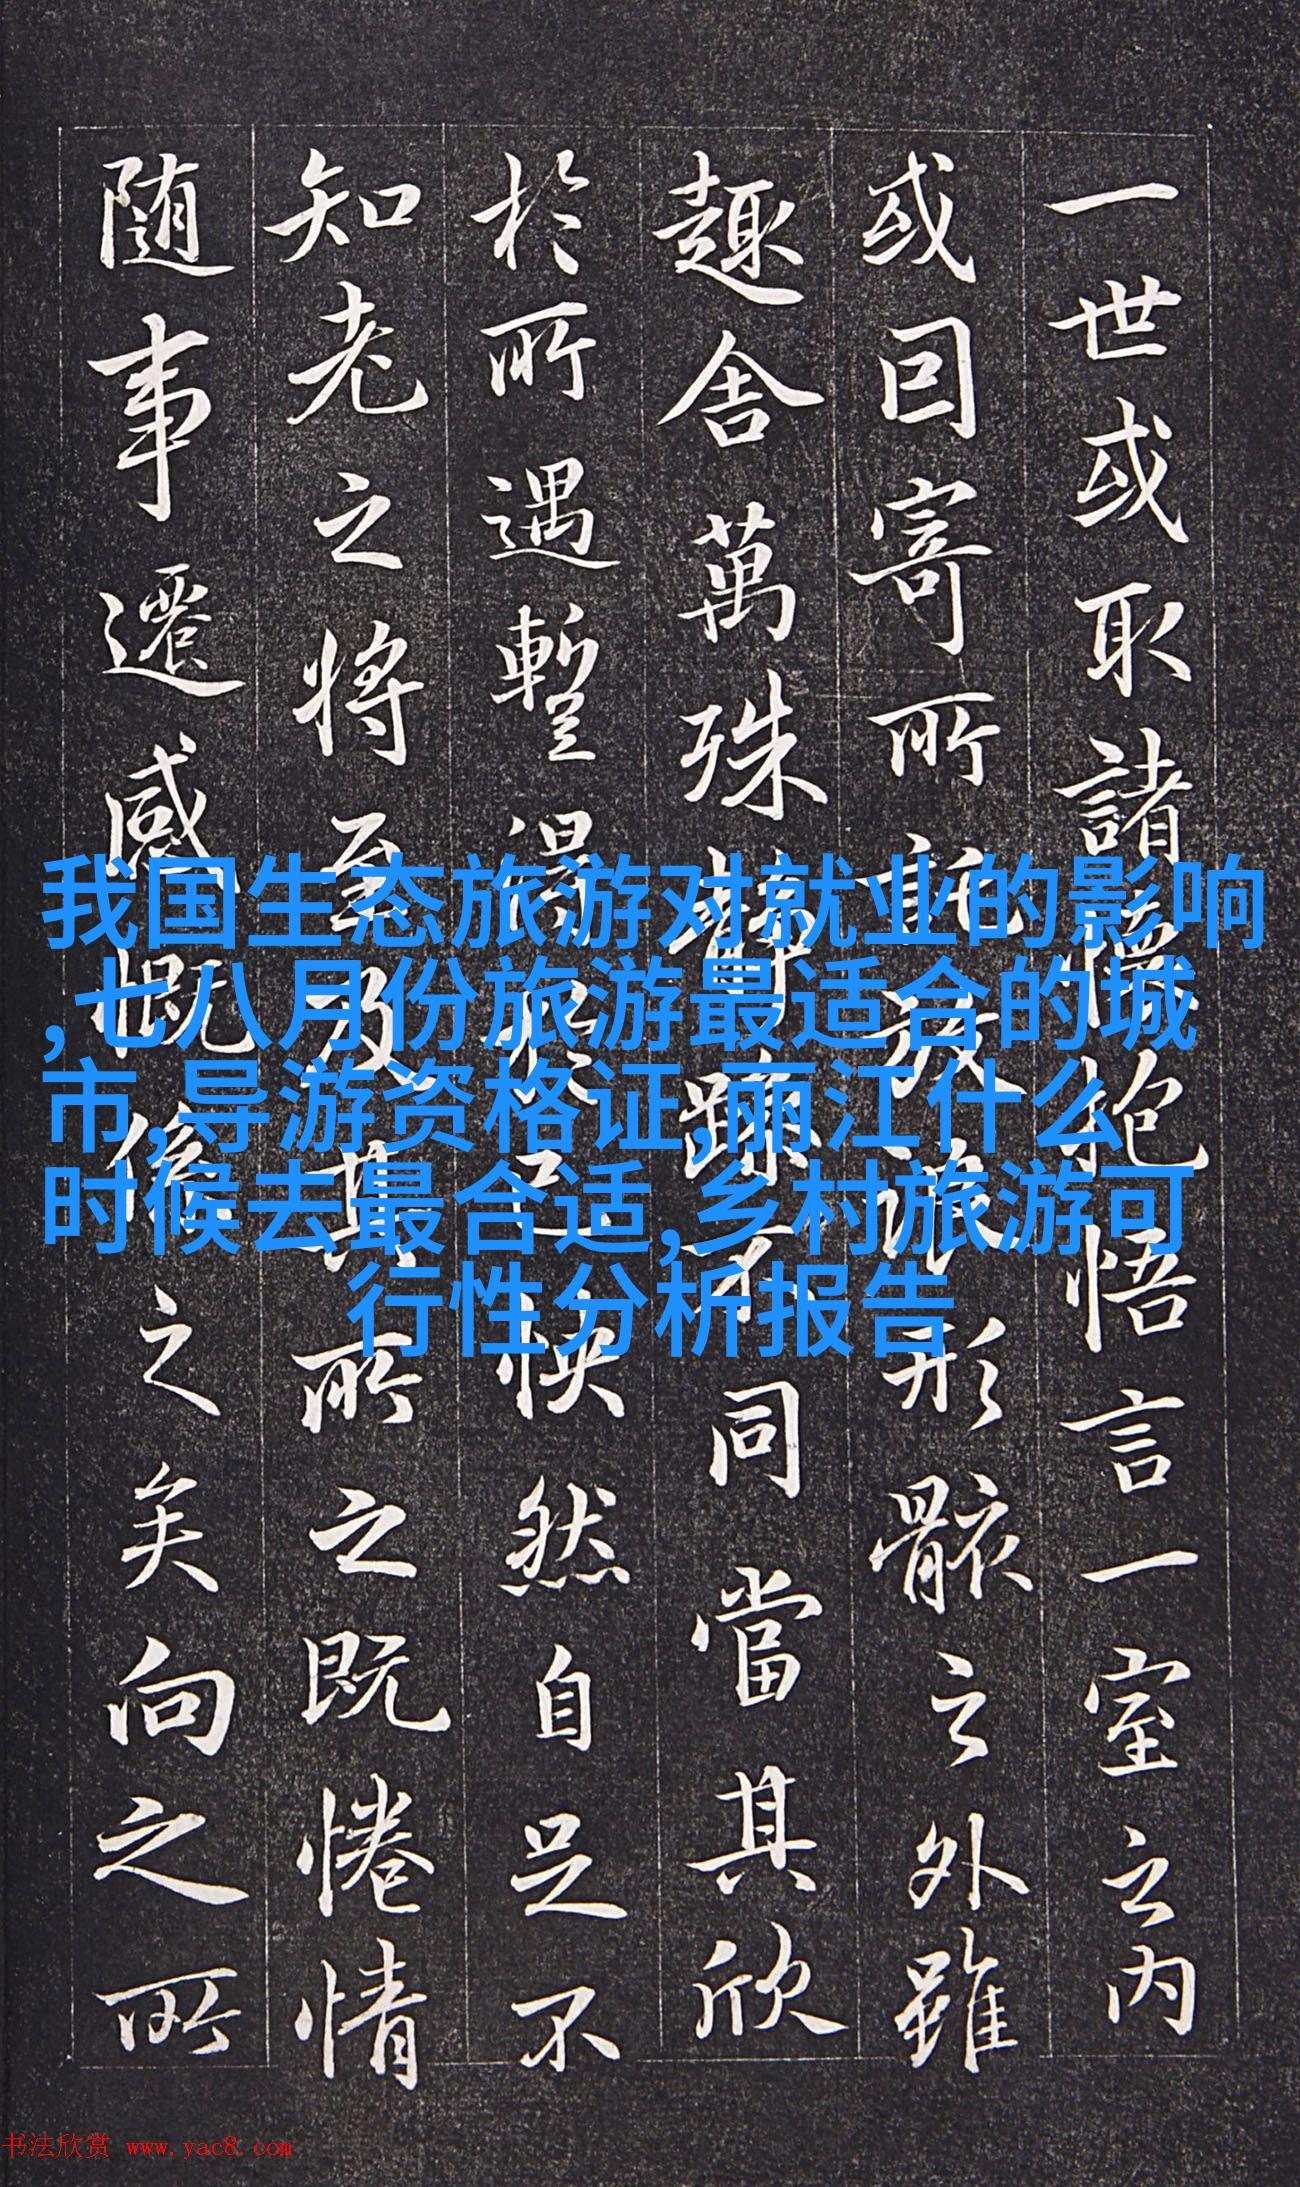 一世或取諸懷抱悟言一室之內
或因寄所託放浪形骸之外雖
趣舍萬殊靜躁不同當其欣
於所遇暫得於己快然自足不
知老之將至及其所之既惓情
随事遷感慨係之矣向之所
我国生态旅游对就业的影响
,七八月份旅游最适合的城
市,导游资格证,丽江什么
时候去最合适,乡村旅游可
行性分析报告
书法欣赏 www.yac8.com